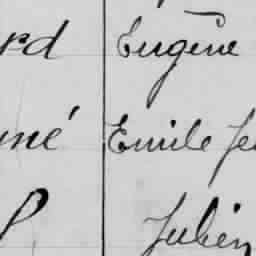 rd Eugène
mé Emile Je
l Julien